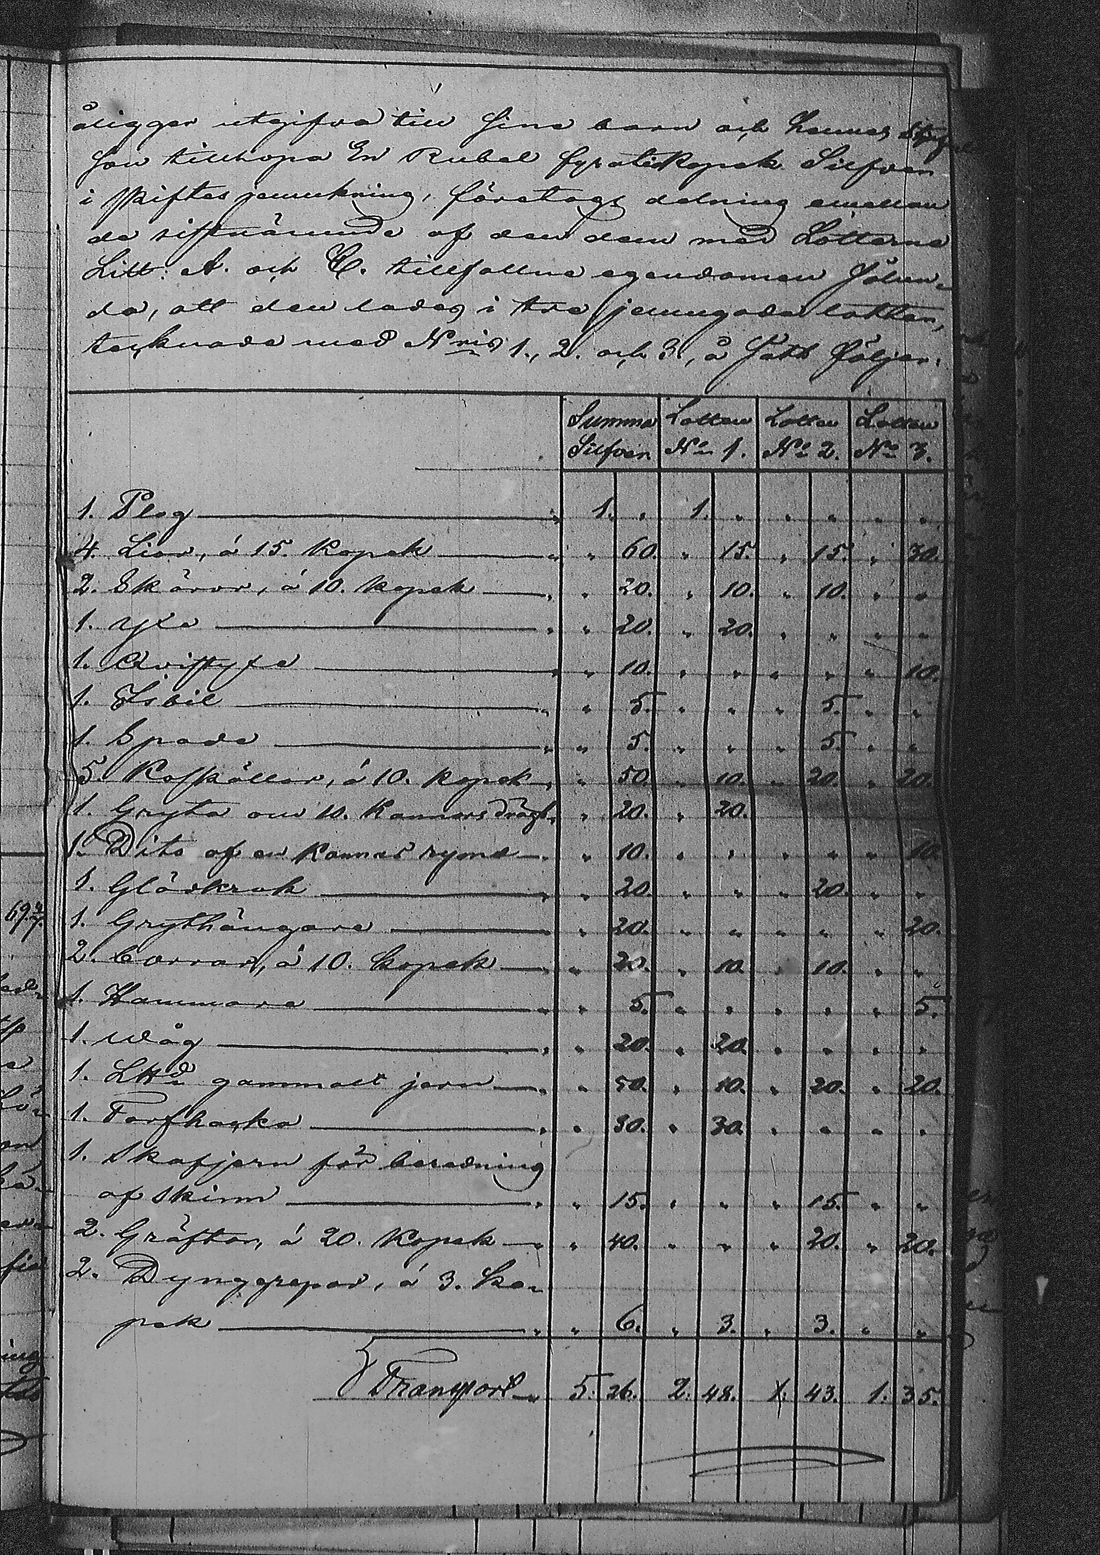 åligger utgifva till sine barn och hennes
son tillhopa En Rubel fyratiokopek Silfver
i skiftesjemkning, företogs delning emellan
de sistnämnde af den dem med Lotterna
Litt. A. och C. tillfallna egendomen sålun-
da, att den lades i tre jemngoda lotter,
tecknade med N:ris 1., 2. och 3., å sätt följer:
Summa Silfver. Lotten No 1. Lotten No 2. Lotten No 3.
1. Plog 1. " 1. " " " " "
4. Liar, á 15. kopek " 60. " 15. " 15. " 30.
2. Skäror, á 10. kopek " 20. " 10. " 10. " "
1. Yxe " 20. " 20. " " " "
1. Qvistyxe " 10. " " " " " 10.
1. Isbil " 5. " " " 5. " "
1. Spade " 5. " " " 5. " "
5. á 10. kopek " 50. " 10. " 20. " 20.
1. Gryta om 10. Kannors drägt " 20. " 20.
1. Dito af en Kannas rymd " 10. " " " " " 10.
1. Glödkrok " 20. " " " 20. " "
1. Grythängare " 20. " " " " " 20.
2. á 10. kopek " 20. " 10. " 10. " "
1. Hammare " 5. " " " " " 5.
1. Våg " 20. " 20. " " " "
1. gammalt jern " 50. " 10. " 20. " 20.
1. Torfhacka " 30. " 30. " " " "
1. Skafjern för beredning
af skinn " 15. " " " 15. " "
2. Gräftor, á 20. kopek " 40. " " " 20. " 20.
2. Dynggrepar, á 3. ko-
pek " 6. " 3. " 3. " "
Transport 5. 26. 2. 48. 1. 43. 1. 35.